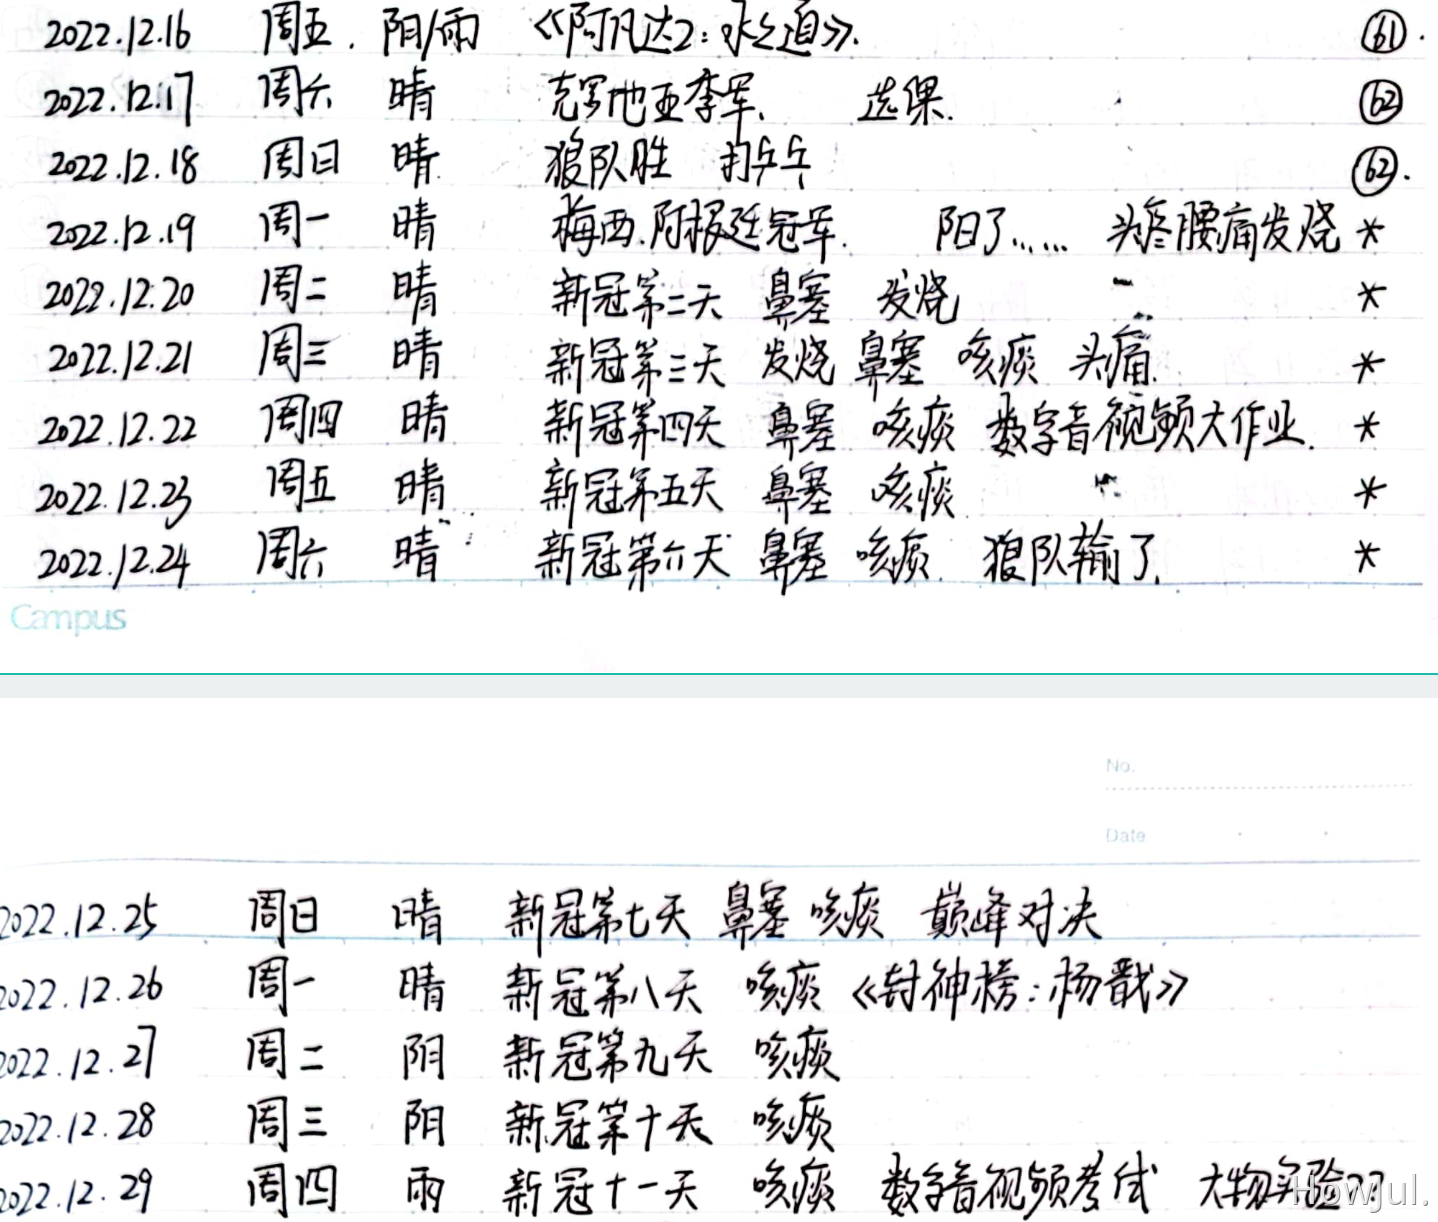 2022.12.16 周五. 阴/雨 《阿凡达2:水之道》. 61.
2022.12.17 周六 晴 克罗地亚季军. 选课. 62
2022.12.18 周日 晴 狼队胜 打乒乓 62.
2022.12.19 周一 晴 梅西.阿根廷冠军. 阳了...... 头疼腰痛发烧 *
2022.12.20 周二 晴 新冠第二天 鼻塞 发烧 *
2022.12.21 周三 晴 新冠第三天 发烧 鼻塞 咳痰 头痛. *
2022.12.22 周四 晴 新冠第四天 鼻塞 咳痰 数字音视频大作业. *
2022.12.23 周五 晴 新冠第五天 鼻塞 咳痰 *
2022.12.24 周六 晴 新冠第六天 鼻塞 咳痰 狼队输了. *
Campus
No.
Date
2022.12.25 周日 晴 新冠第七天 鼻塞 咳痰 巅峰对决
2022.12.26 周一 晴 新冠第八天 咳痰 《封神榜:杨戬》
2022.12.27 周二 阴 新冠第九天 咳痰
2022.12.28 周三 阴 新冠第十天 咳痰
2022.12.29 周四 雨 新冠十一天 咳痰 数字音视频考试 大物实验
Howjul.